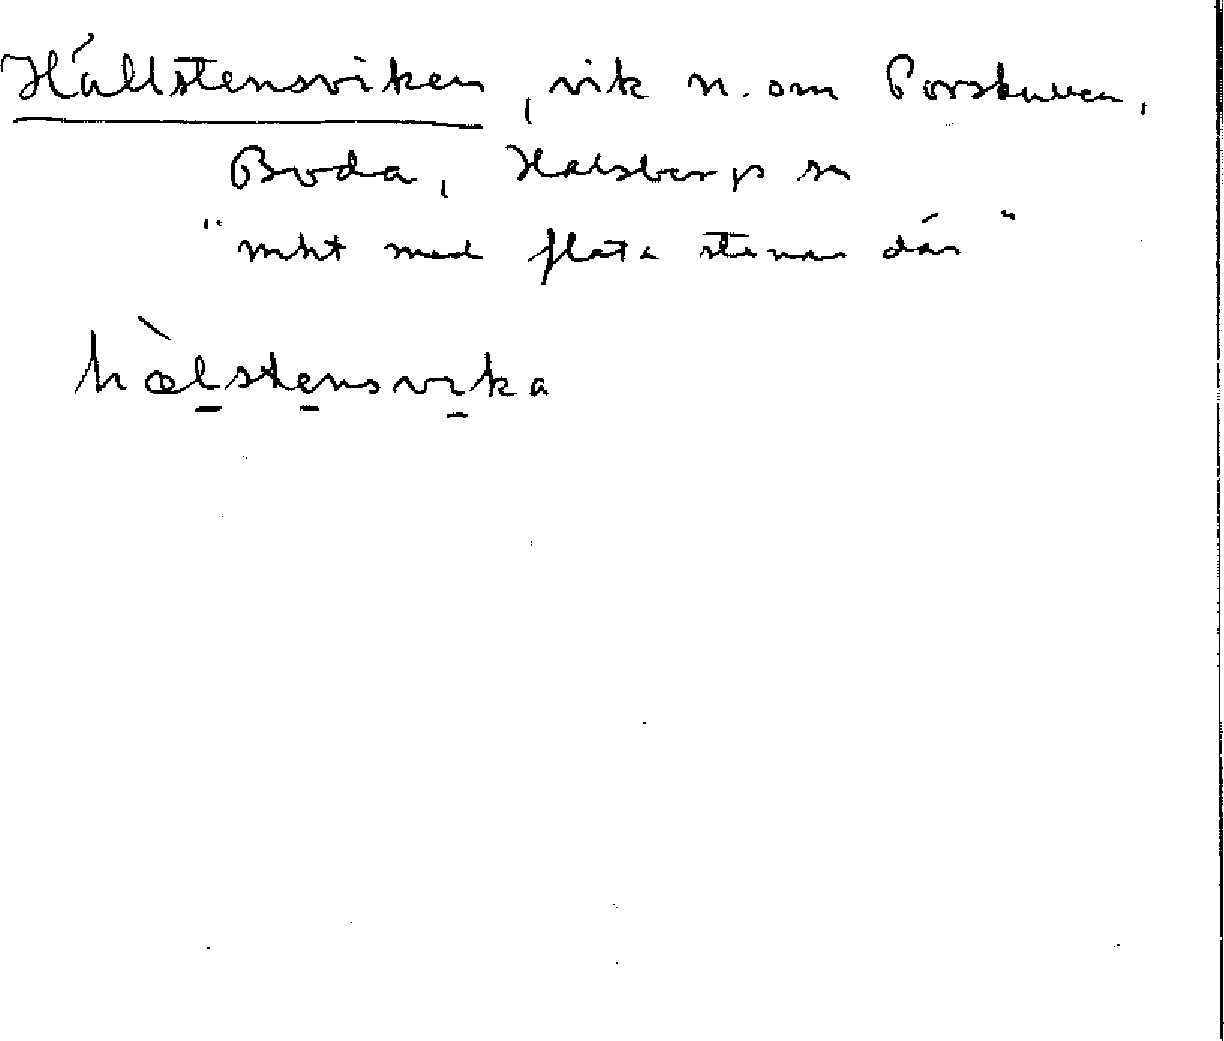 Hällstensviken, vik n. om Porskuven,
Boda, Halsbergs sn
"mkt med flata stenar där"
hæ̀lstensvika